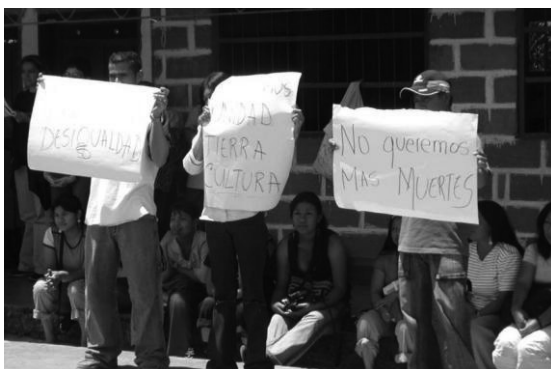 DESIGUALDAD
UNIDAD
TIERRA
CULTURA
No queremos
MAS MUERTES